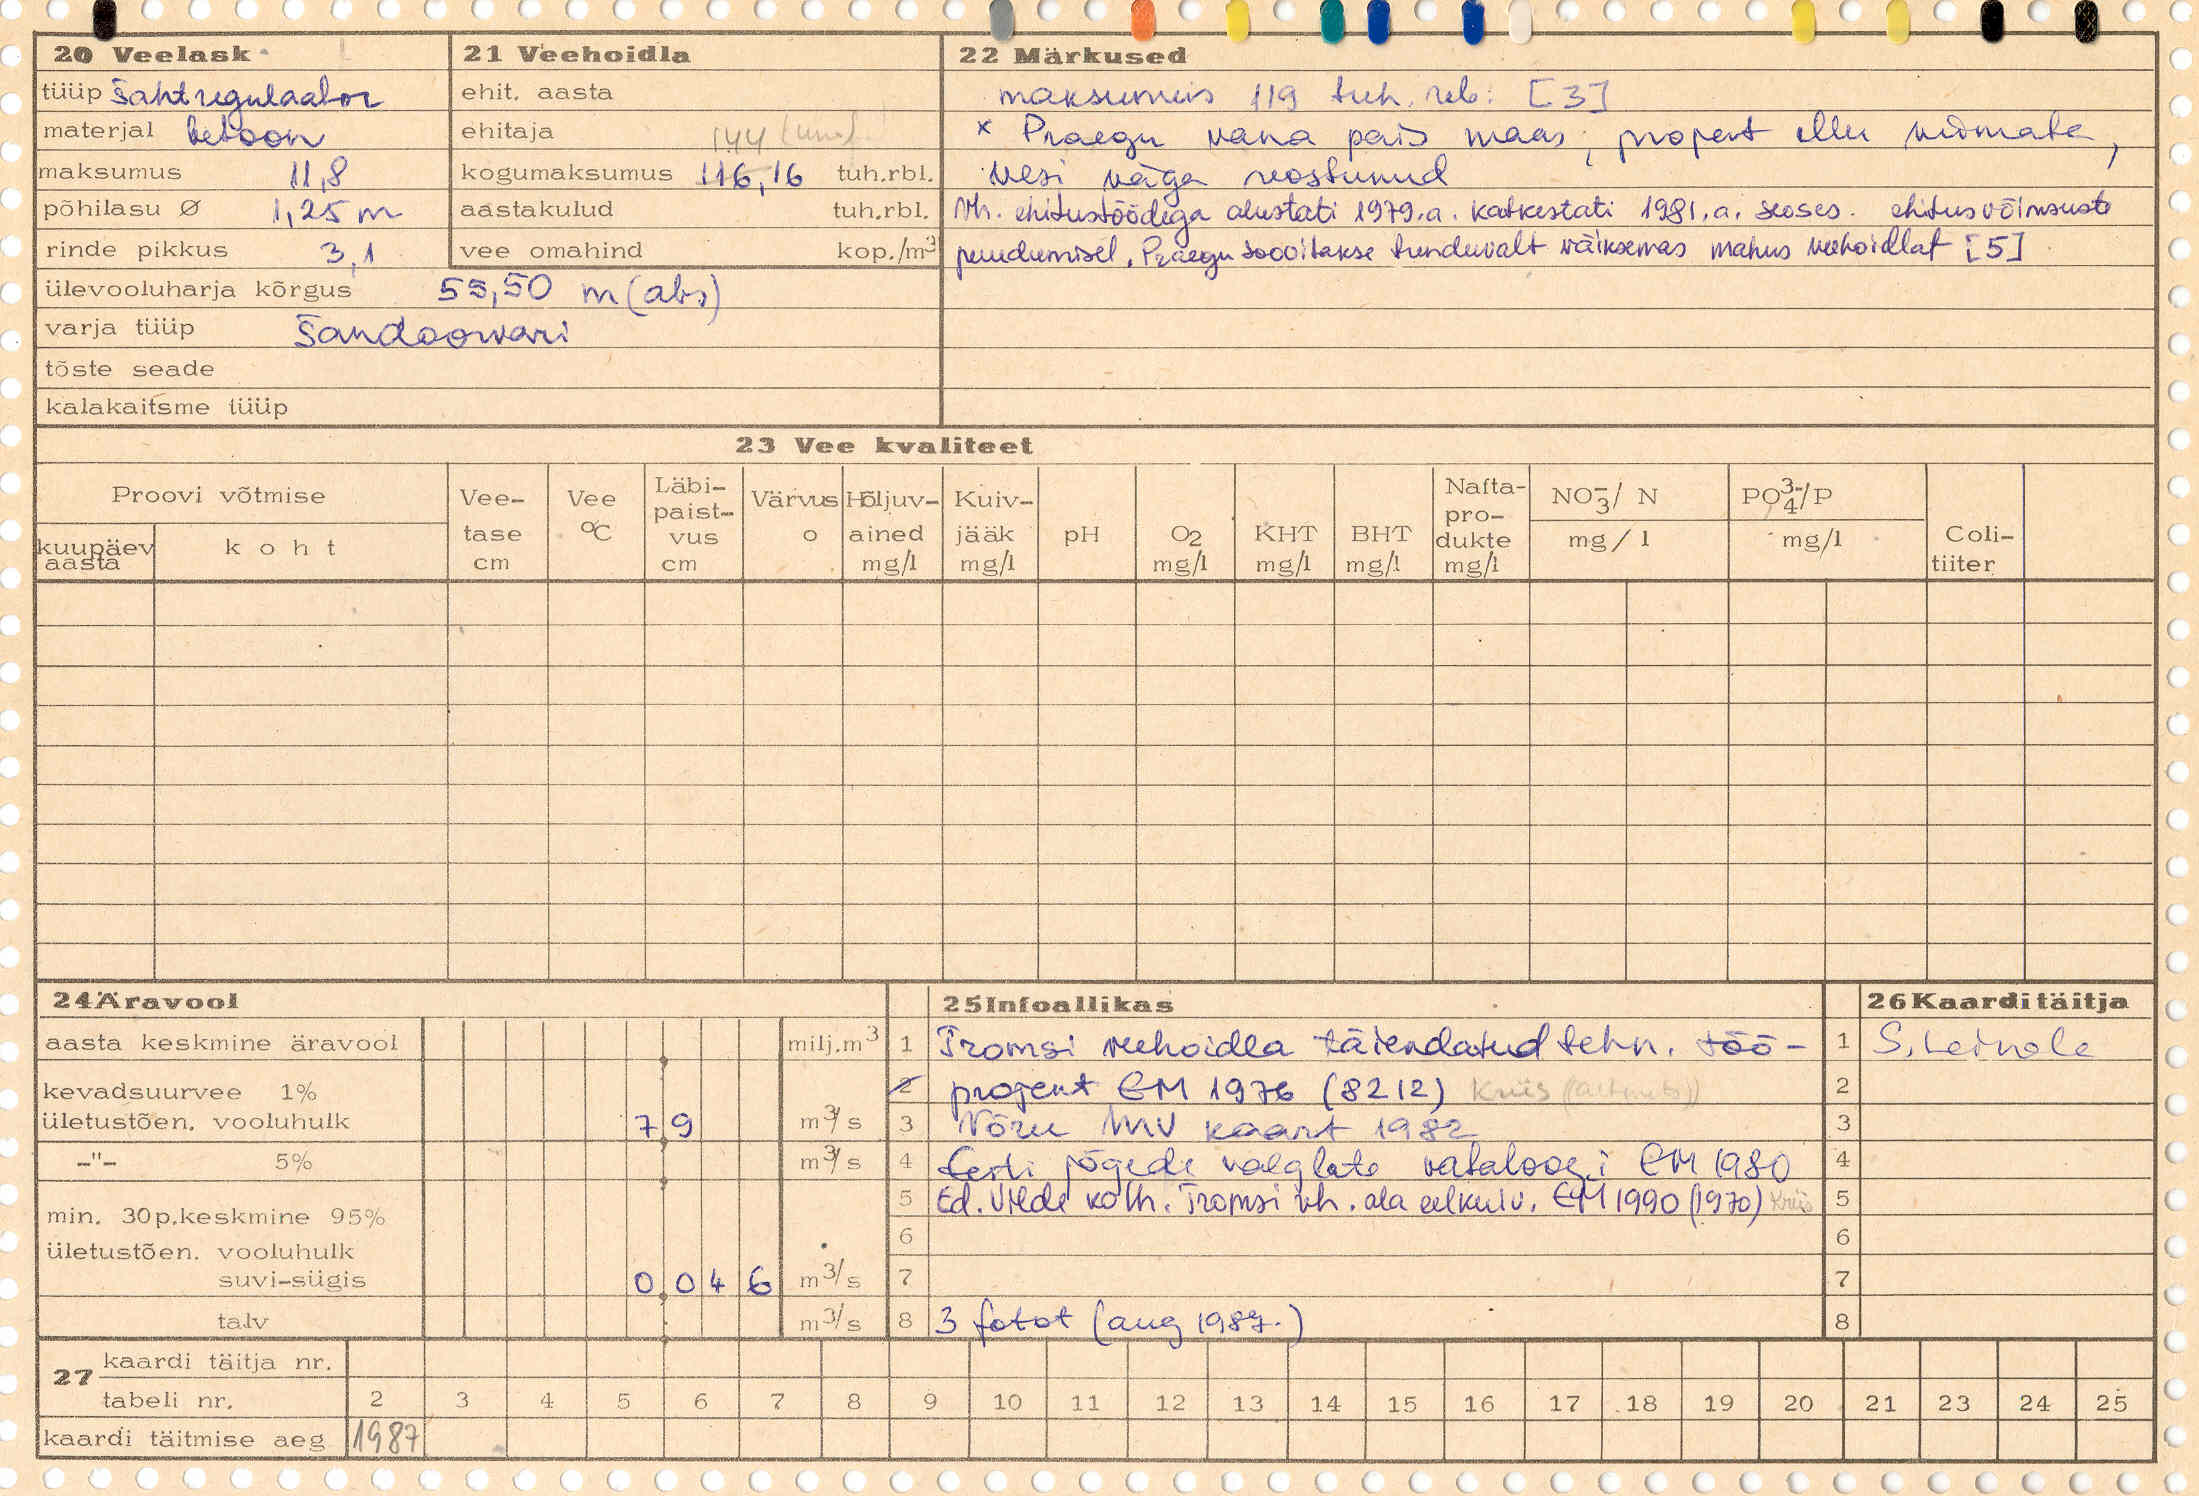 20 Veelask
tüüp šahtregulaator
materjal betoon
maksumus 11,8
põhilasu Ø 1,25 m
rinde pikkus 3,1
ülevooluharja kõrgus 55,50 m (abs)
varja tüüp šandoorvari
tõste seade
kalakaitsme tüüp
21 Veehoidla
ehit. aasta
ehitaja
144
kogumaksumus 116,16 tuh.rbl.
aastakulud tuh.rbl.
vee omahind kop./m3
22 Märkused
maksumus 119 tuh. rub. [3]
x Praegu vana pais maas, projekt ellu viimata,
vesi väga reostunud
Vh. ehitustöödega alustati 1979.a. katkestati 1981.a. seoses ehitusvõimsuste
puudumisel. Praegu soovitakse tunduvalt väiksemas mahus veehoidlat [5]
23 Vee kvaliteet
Proovi võtmise
kuupäev aasta
koht
Vee-
tase
cm
Vee
°C
Läbi-
paist-
vus
cm
Värvus
o
Hõljuv-
ained
mg/l
Kuiv-
jääk
mg/l
pH
O2
mg/l
KHT
mg/l
BHT
mg/l
Nafta-
pro-
dukte
mg/l
NO3-/ N
mg/l
PO4 3-/P
mg/l
Coli-
tiiter
24 Äravool
aasta keskmine äravool milj.m3
kevadsuurvee 1%
ületustõen. vooluhulk 7 9 m3/s
-"- 5% m3/s
min. 30p.keskmine 95%
ületustõen. vooluhulk
suvi-sügis 0 0 4 6 m3/s
talv m3/s
25 Infoallikas
1 Tromsi veehoidla täiendatud tehn. töö-
2 projekt EM 1976 (8212) Kriis
3 Võru MV kaart 1982
4 Eesti jõgede valglate kataloogi EM 1980
5 Ed. Vilde kolh. Tromsi vh. ala eelkulv. EM 1990 (1970) Kriis
6
7
8 3 fotot (aug 1987.)
26 Kaardi täitja
1 S. Leinola
2
3
4
5
6
7
8
27 kaardi täitja nr.
tabeli nr. 2 3 4 5 6 7 8 9 10 11 12 13 14 15 16 17 18 19 20 21 23 24 25
kaardi täitmise aeg 1987